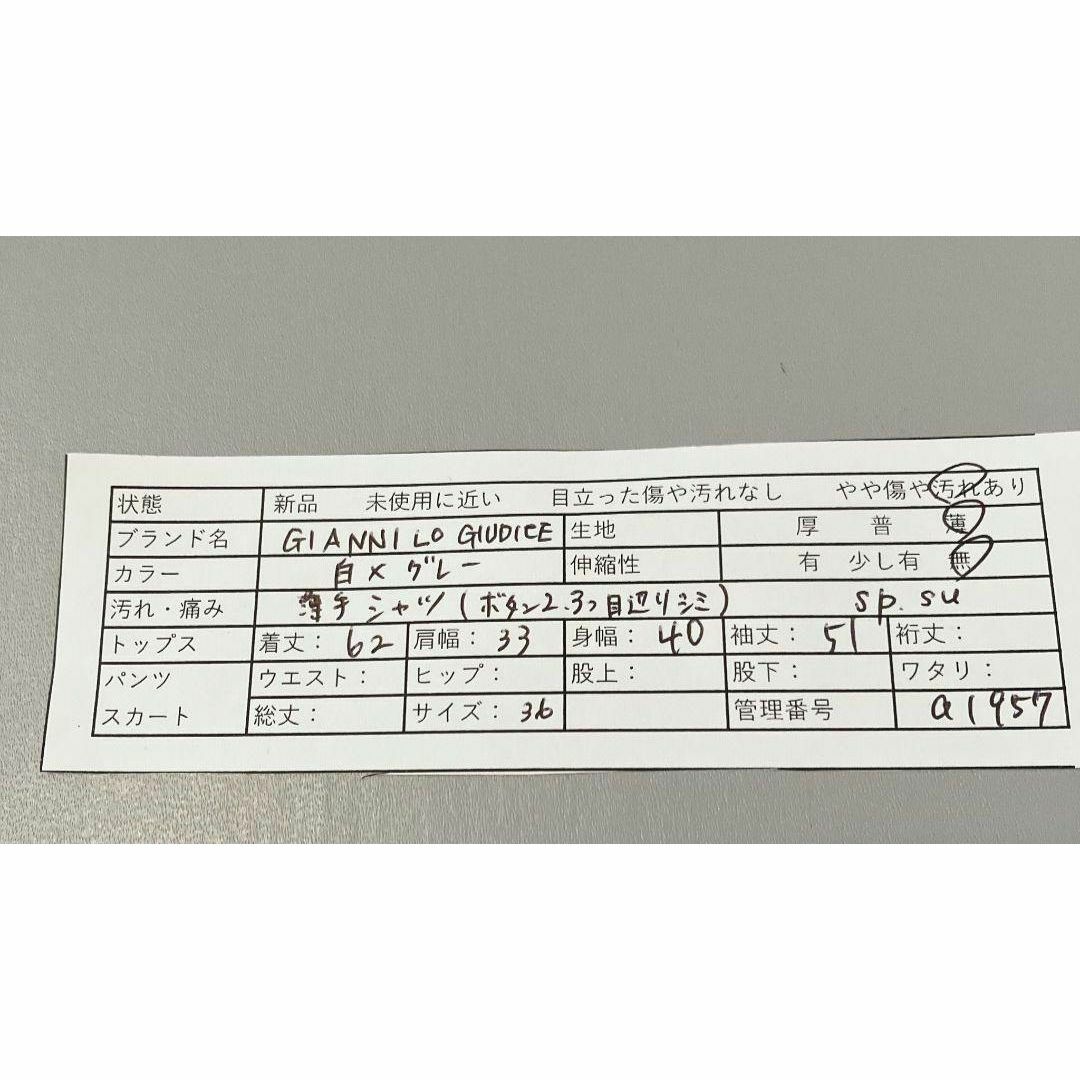 状態 新品 未使用に近い 目立った傷や汚れなし やや傷や汚れあり
ブランド名 GIANNI LO GIUDICE 生地 厚 普 薄
カラー 白×グレー 伸縮性 有 少し有 無
汚れ・痛み 薄手シャツ(ボタン2.3つ目辺りシミ) sp.su
トップス 着丈：62 肩幅：33 身幅：40 袖丈：51 裄丈：
パンツ ウエスト： ヒップ： 股上： 股下： ワタリ：
スカート 総丈： サイズ：36 管理番号 a1957